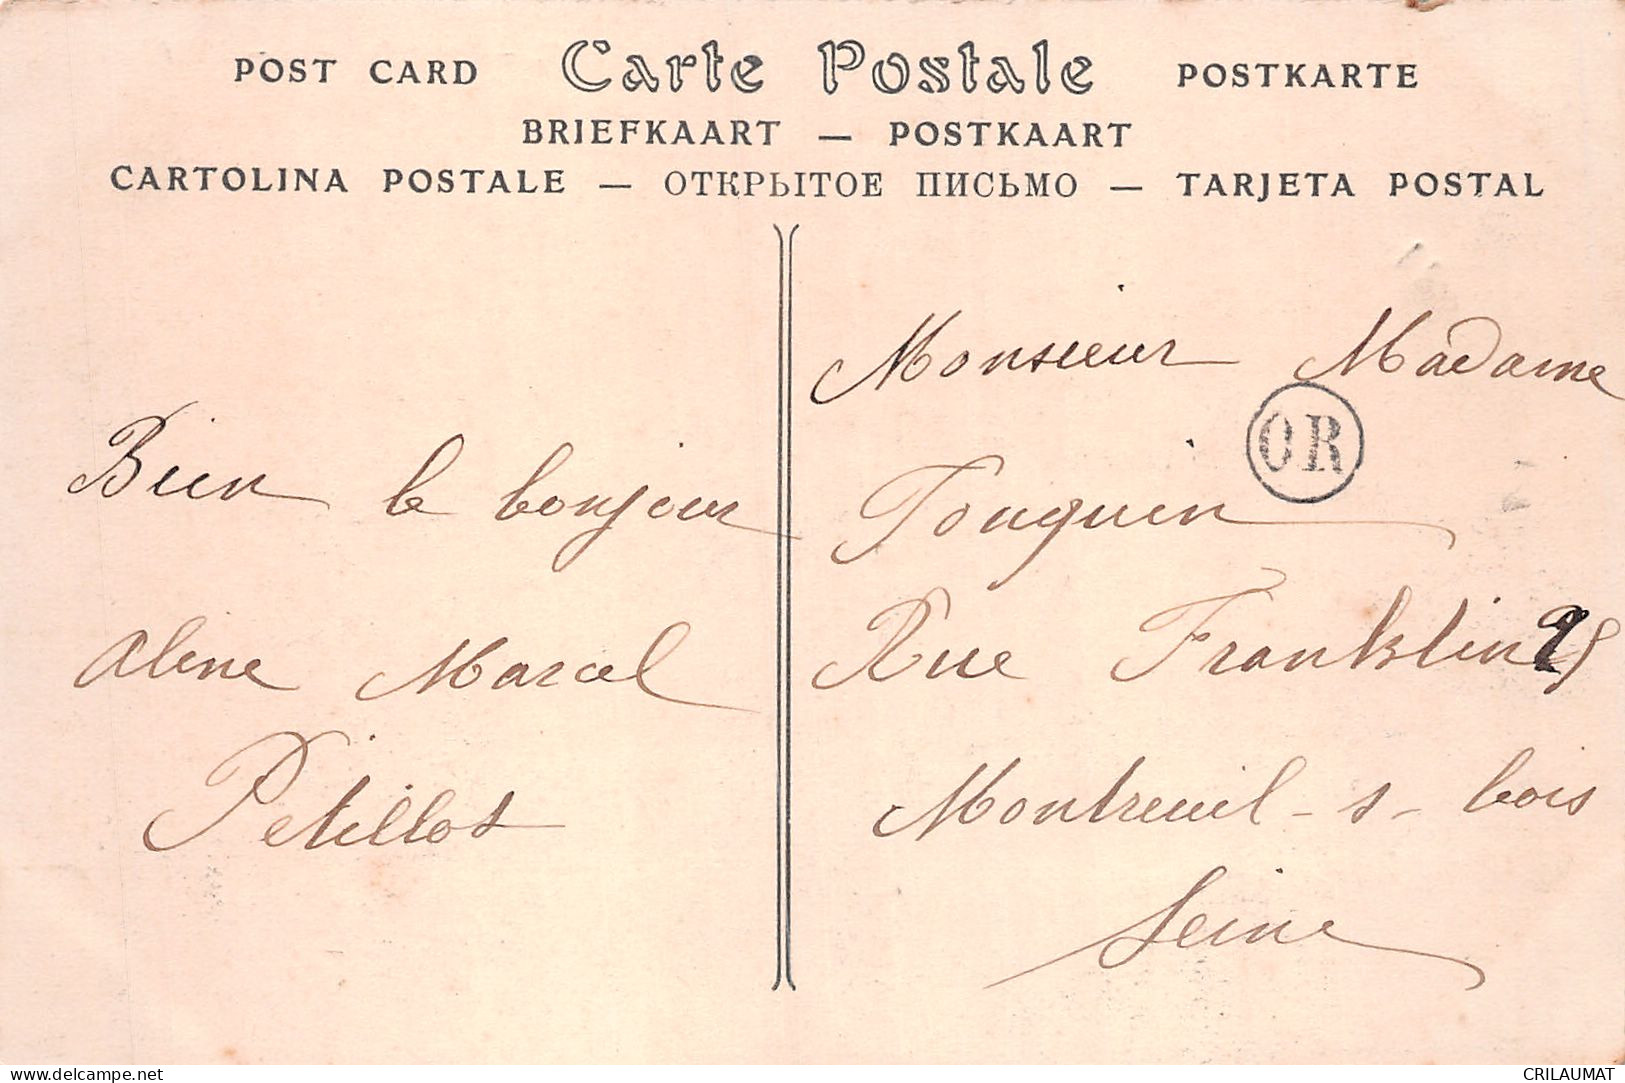 POST CARD Carte Postale POSTKARTE
BRIEFKAART — POSTKAART
CARTOLINA POSTALE — ОТКРЫТОЕ ПИСЬМО — TARJETA POSTAL
Bien le bonjour
Aline Marcel
Petillot
Monsieur Madame
OR
Touquin
Rue Franklin 25
Montreuil-s-bois
Seine
delcampe.net
CRILAUMAT